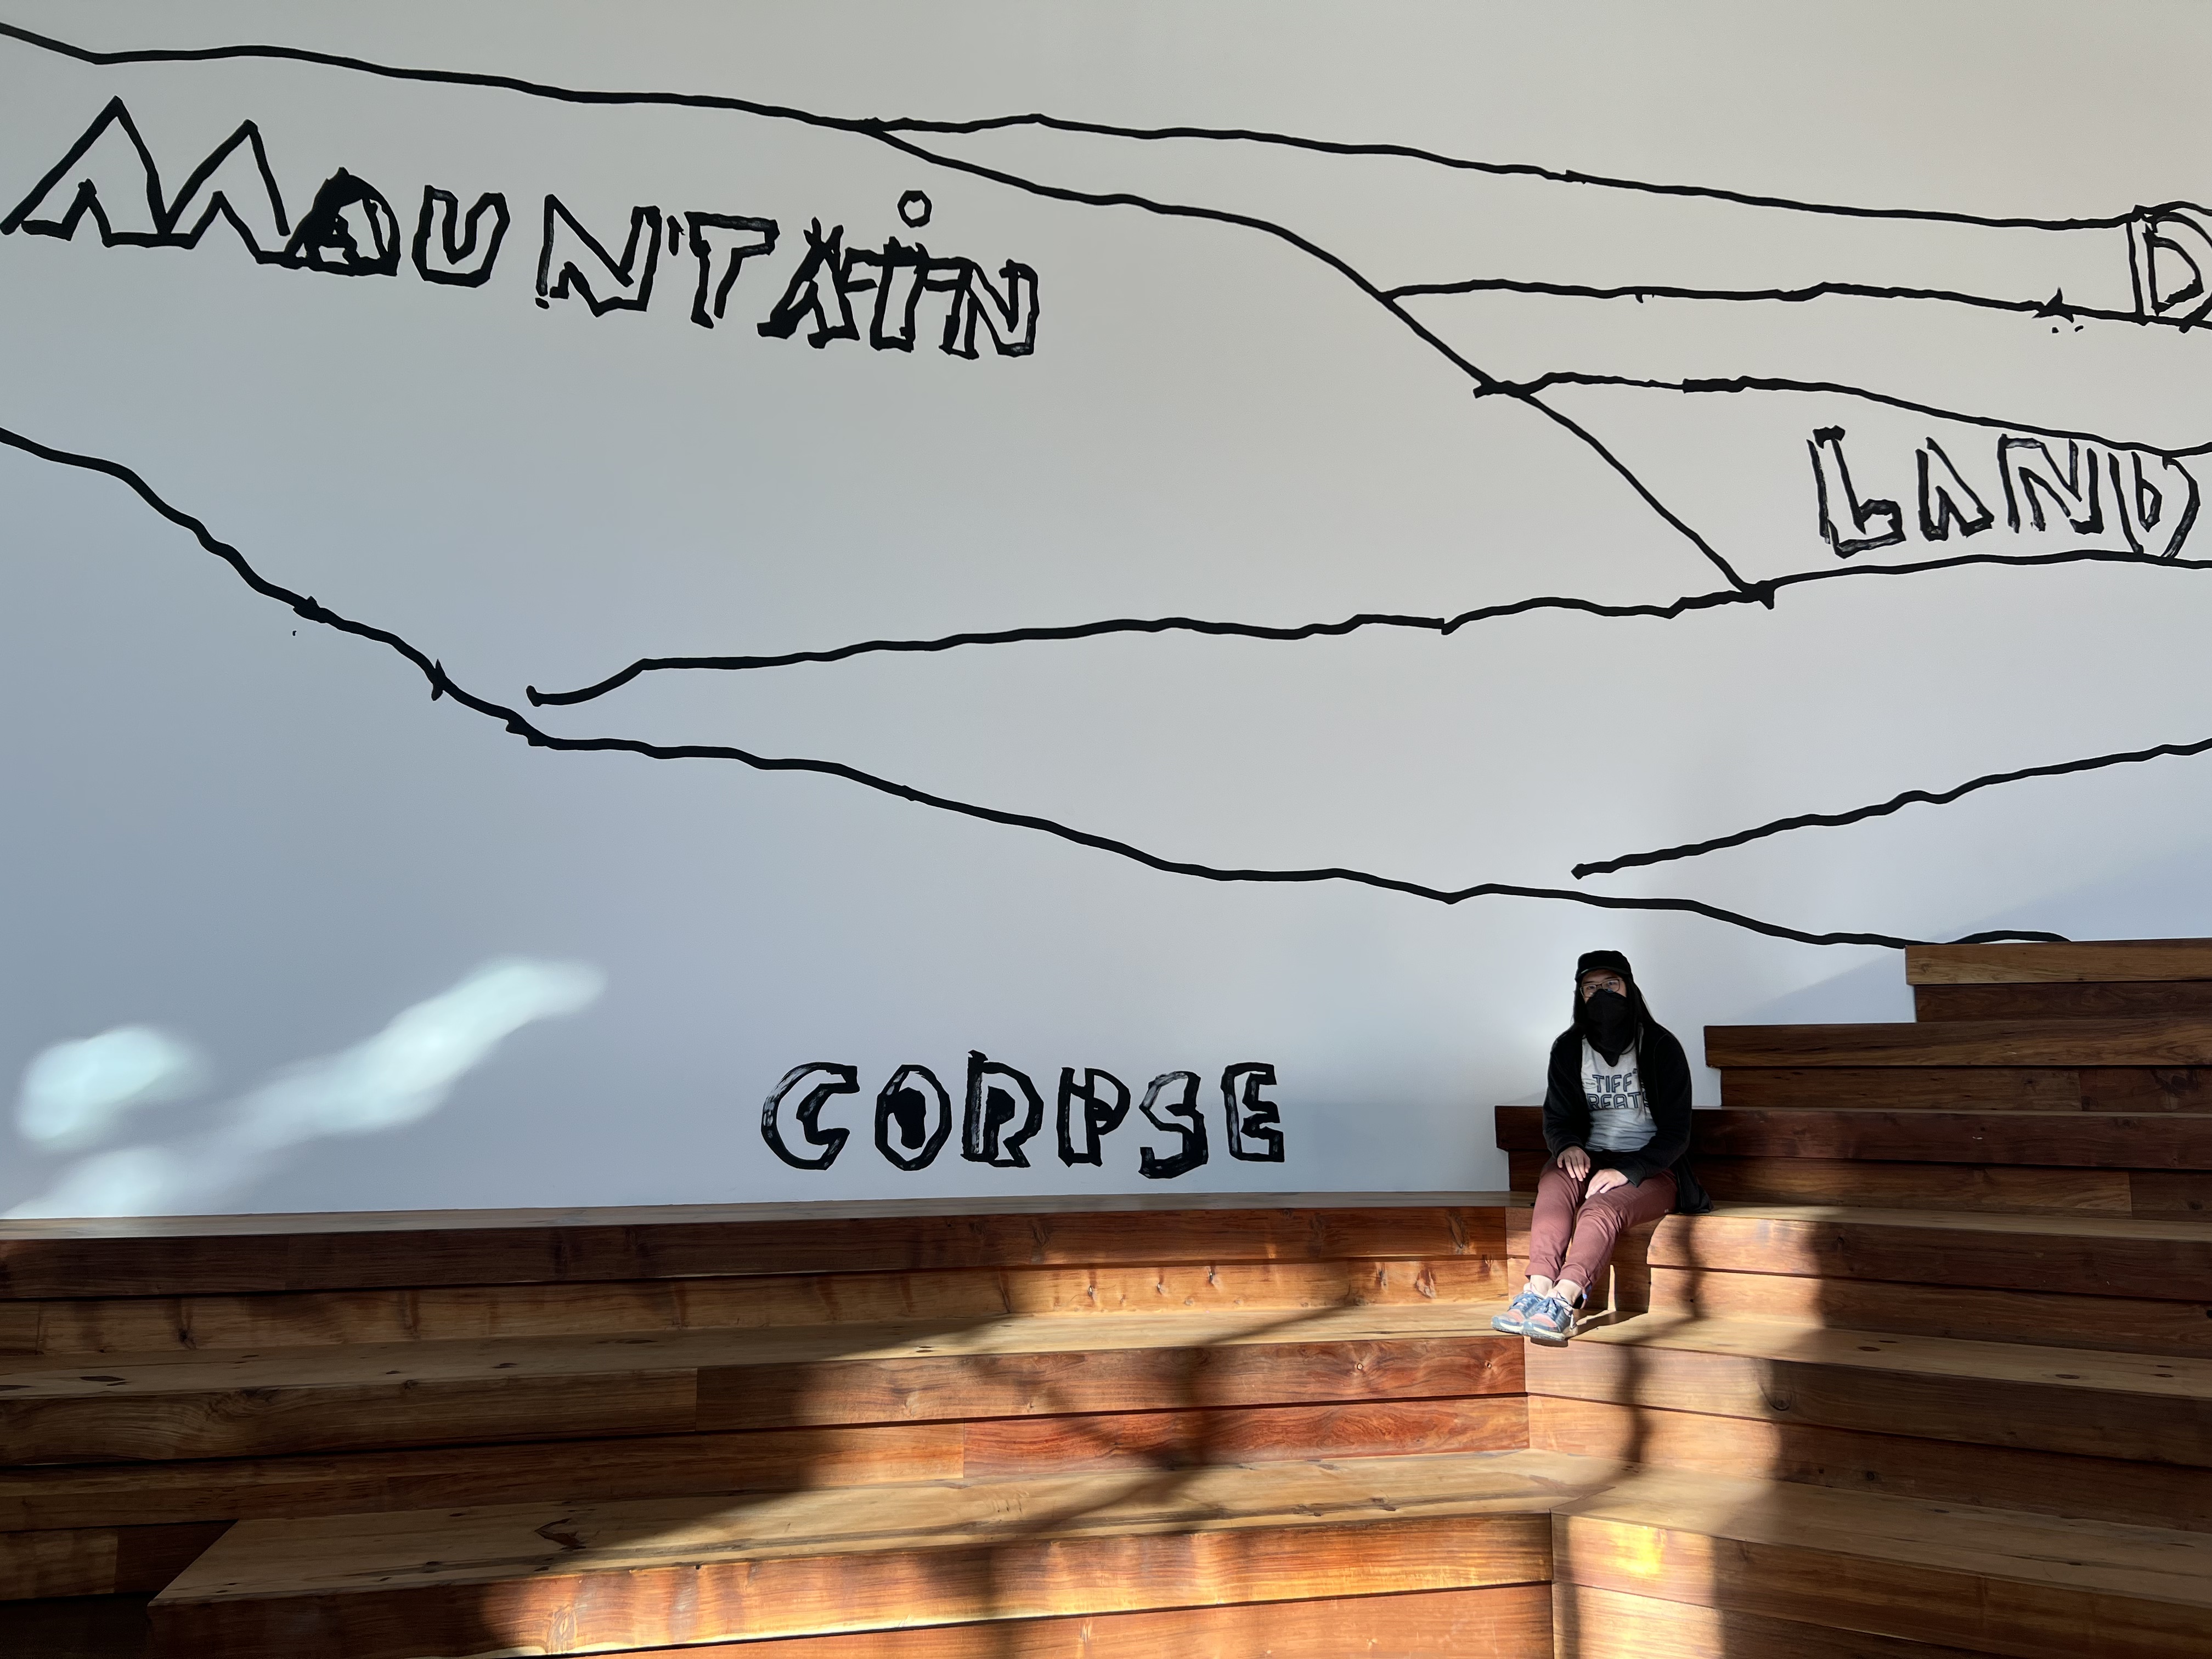 MOUNTAIN
D
LAND
CORPSE
TIFF'
REAT